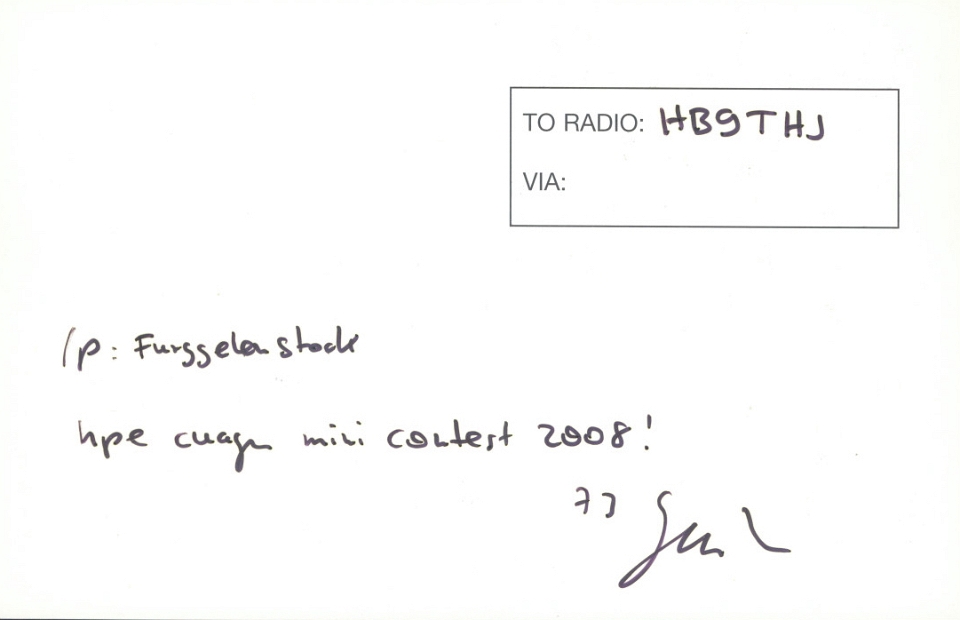 TO RADIO: HB9THJ
VIA:
/p: Furggelenstock
hpe cuagn mini contest 2008!
73